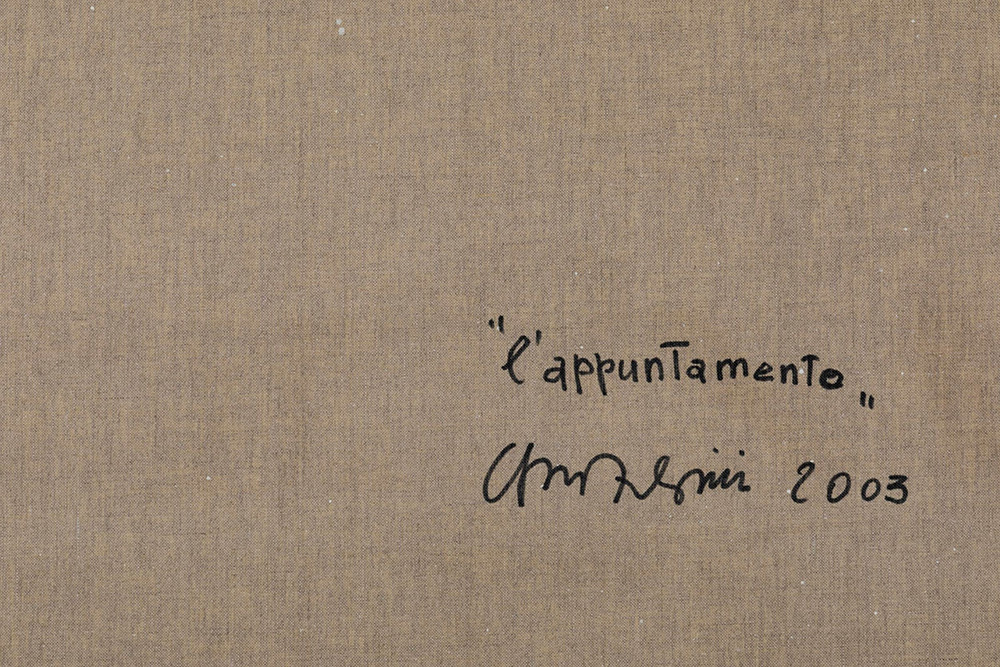 "l'appuntamento"
2003